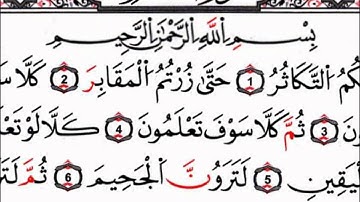 بِسْمِ اللَّهِ الرَّحْمَٰنِ الرَّحِيمِ
كُمُ التَّكَاثُرُ ١ حَتَّىٰ زُرْتُمُ الْمَقَابِرَ ٢ كَلَّا سَ
٣ ثُمَّ كَلَّا سَوْفَ تَعْلَمُونَ ٤ كَلَّا لَوْ تَعْ
لْيَقِينِ ٥ لَتَرَوُنَّ الْجَحِيمَ ٦ ثُمَّ لَتَرَ